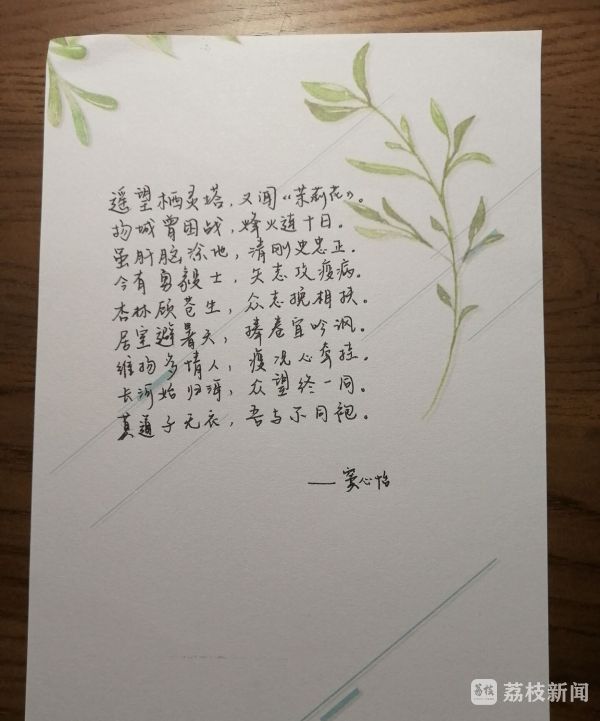 遥望栖灵塔，又闻《茉莉花》。
扬城曾困战，烽火连十日。
虽肝脑涂地，清刚史忠正。
今有勇毅士，矢志攻疫病。
杏林顾苍生，众志挽相扶。
居室避暑天，捧卷宜吟讽。
维扬多情人，疫况心牵挂。
长河始归洱，众望终一同。
莫道子无衣，吾与尔同袍。
——窦心怡
荔枝 荔枝新闻